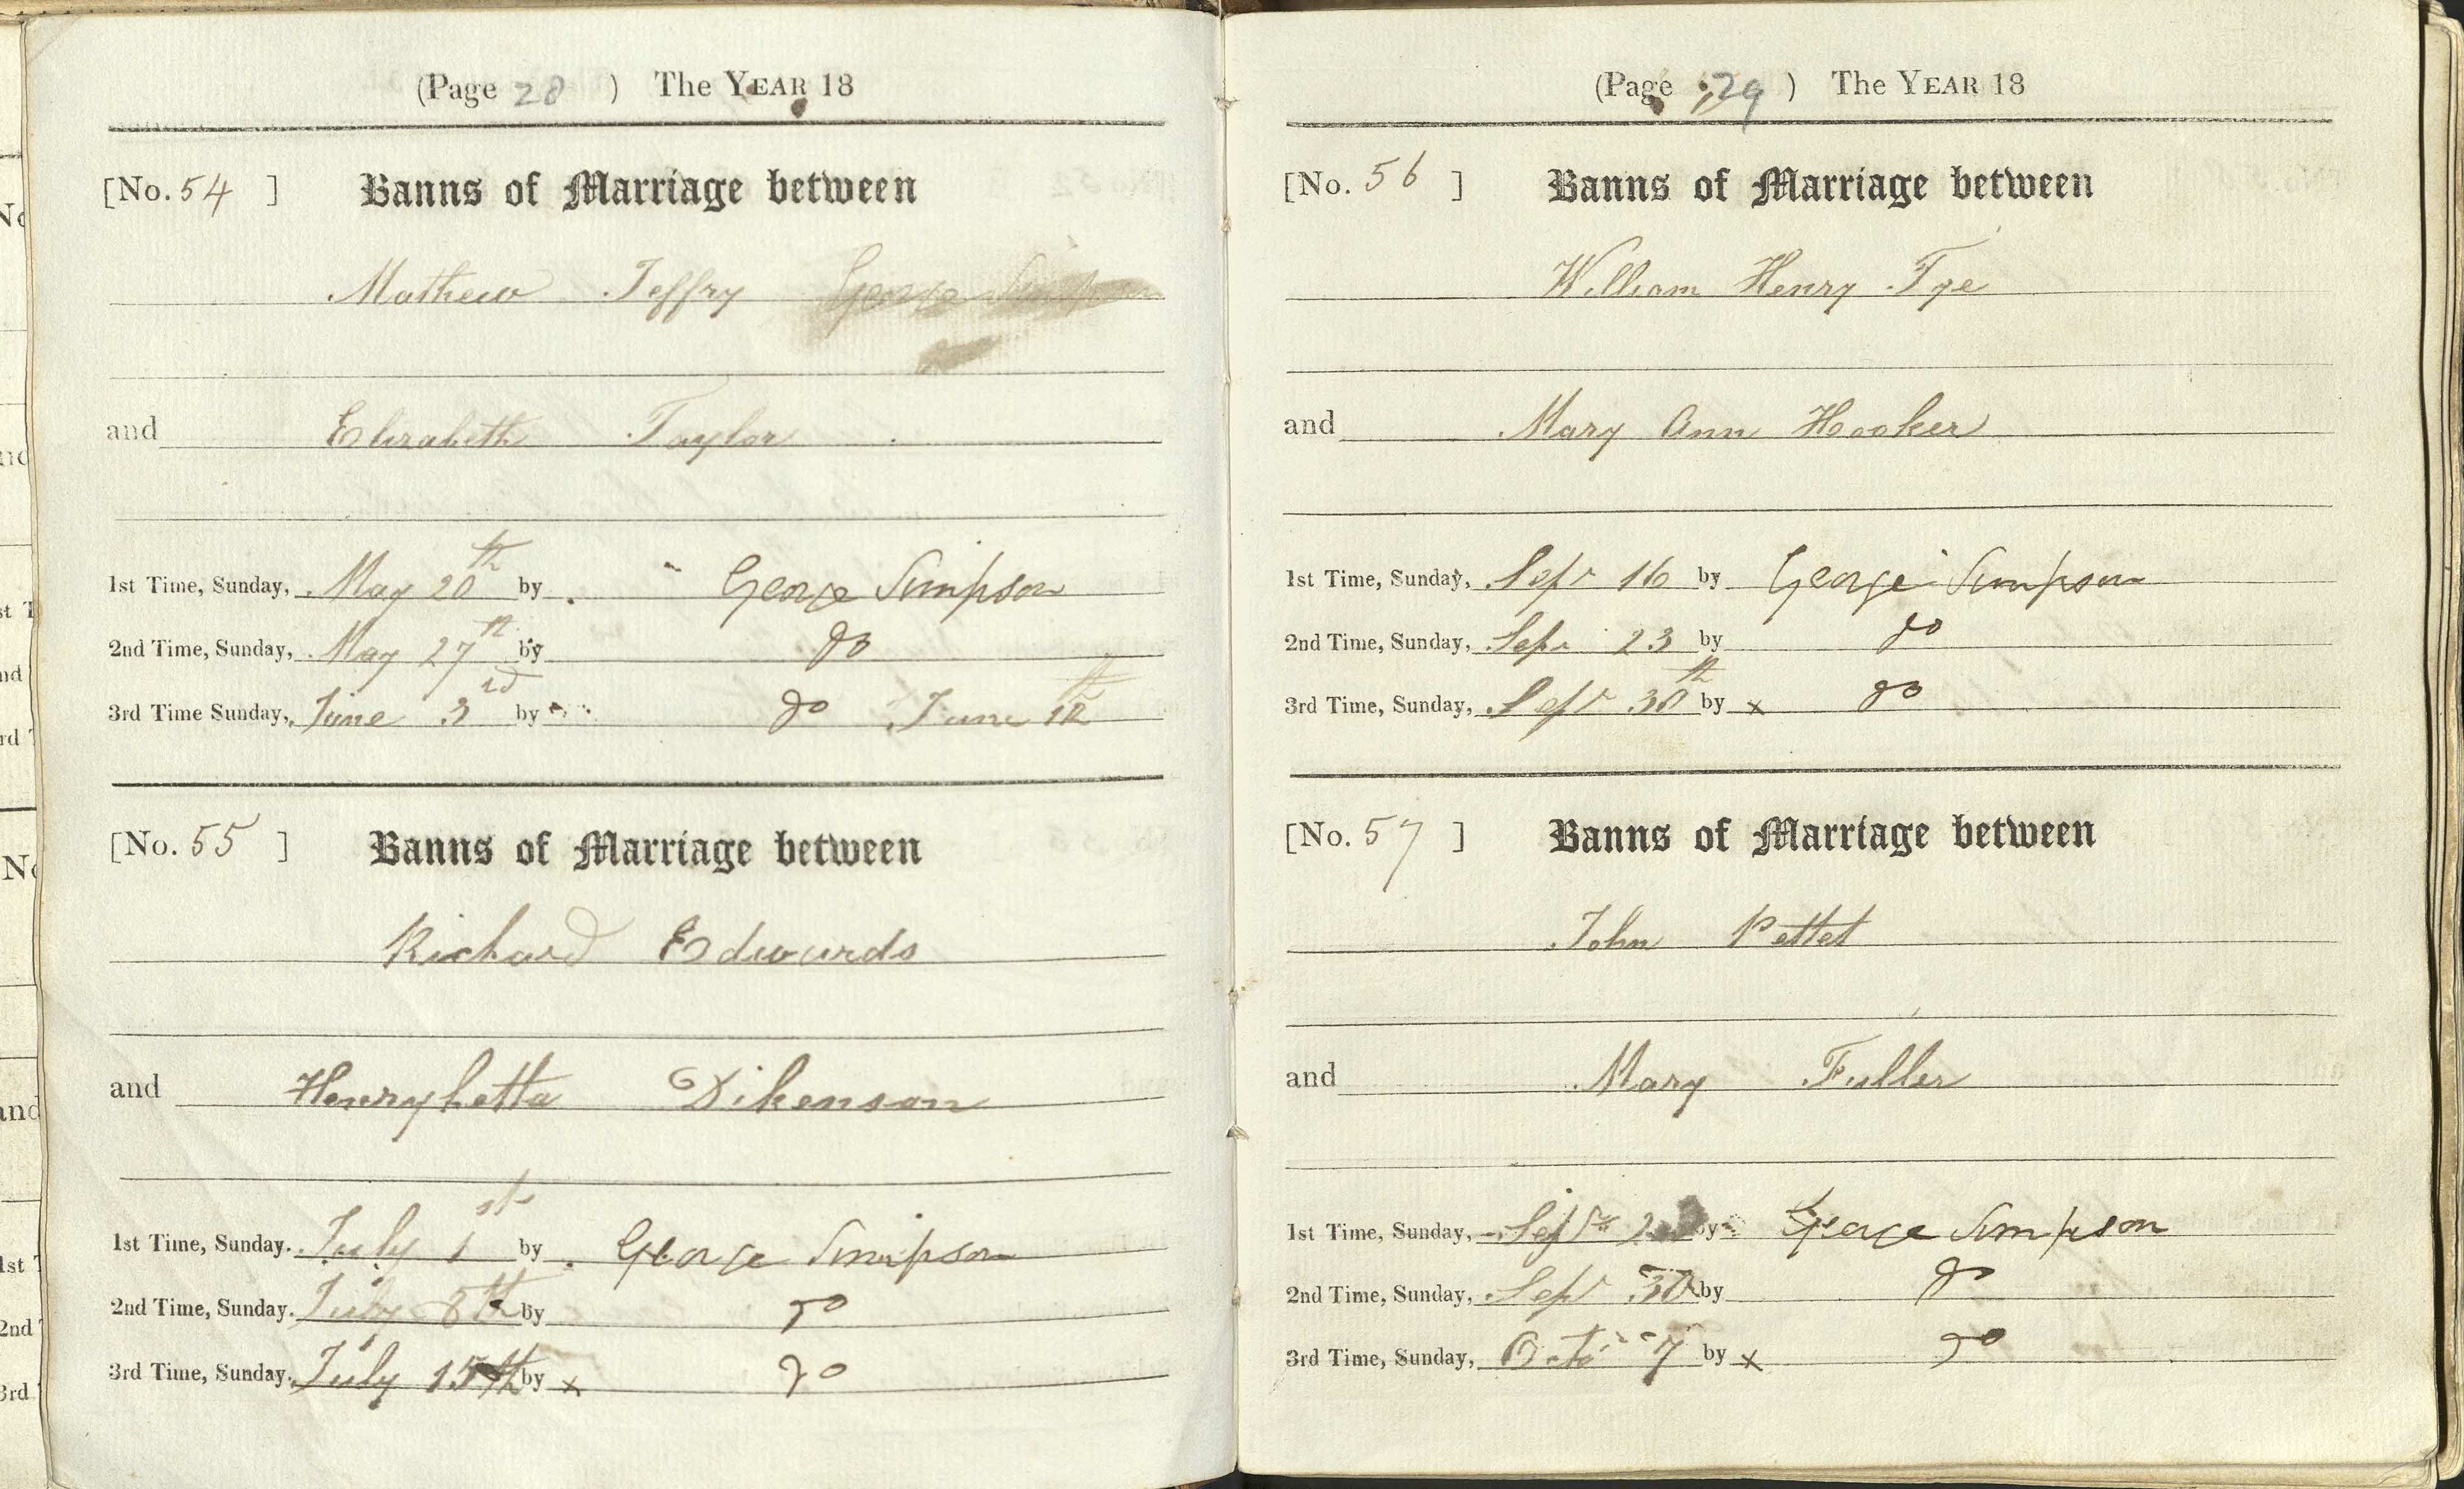 (Page 28 ) The YEAR 18
[No. 54 ] Banns of Marriage between
Mathew Jeffry George Simpson
and Elizabeth Taylor
1st Time, Sunday, May 20th by George Simpson
2nd Time, Sunday, May 27th by do
3rd Time Sunday, June 3rd by do June
[No. 55 ] Banns of Marriage between
Richard Edwards
and Henryhetta Dikenson
1st Time, Sunday. July 1st by George Simpson
2nd Time, Sunday. July 8th by do
3rd Time, Sunday. July 15th by x do
(Page 29 ) The YEAR 18
[No. 56 ] Banns of Marriage between
William Henry Tye
and Mary Ann Hooker
1st Time, Sunday, Sept 16 by George Simpson
2nd Time, Sunday, Sept 23 by do
3rd Time, Sunday, Sept 30th by x do
[No. 57 ] Banns of Marriage between
John Pettet
and Mary Fuller
1st Time, Sunday, Sept by George Simpson
2nd Time, Sunday, Sept 30 by do
3rd Time, Sunday, Octo 7 by x do